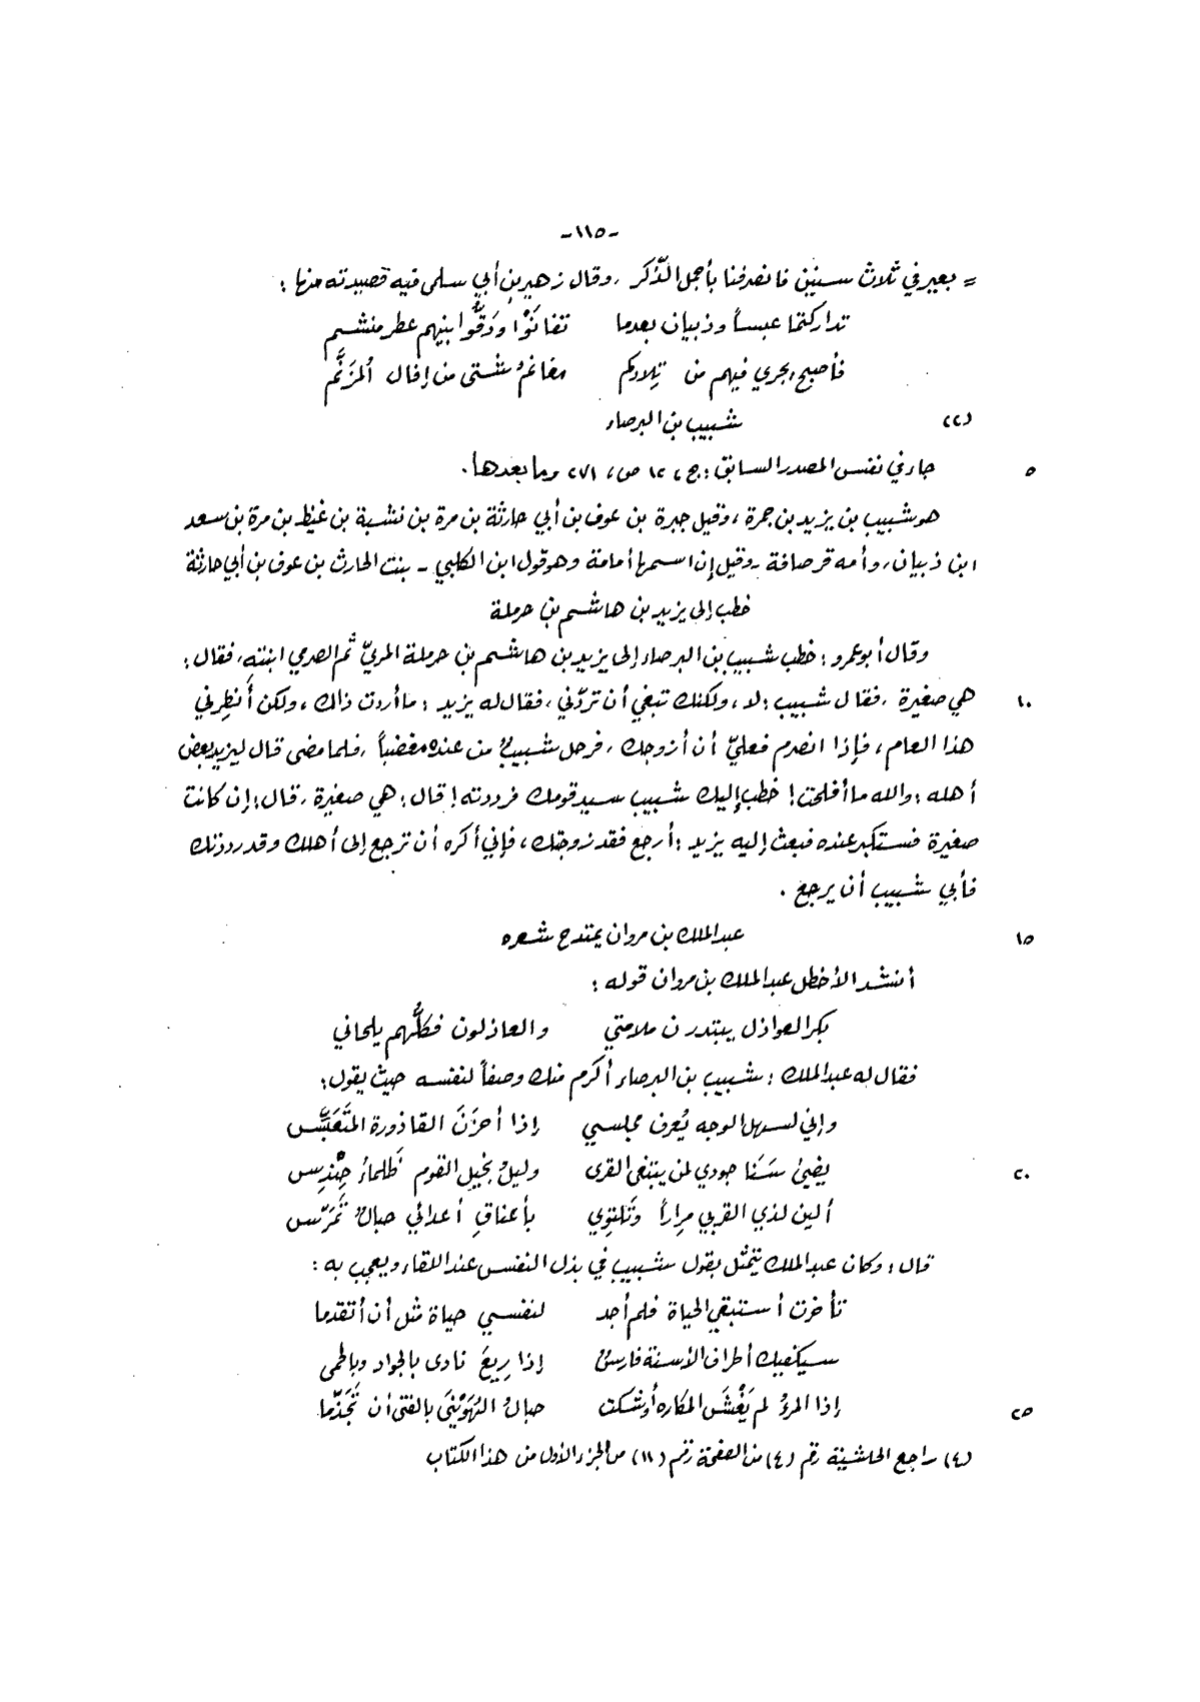 -١١٥-
= بعير في ثلاث سنين فانصرفنا بأجمل الذّكر ، وقال زهير بن أبي سلمى فيه قصيدته منها :
تداركتما عبساً وذبيان بعدما تفانَوْا ودَقُّوا بينهم عطر منشم
فأصبح يجري فيهم من تِلادكم مغانمُ شتى من إفال المُزَنَّم
(٢) شبيب بن البرصاء
٥ جاء في نفس المصدر السابق : ج ، ١٢ ص ، ٢٧١ وما بعدها .
هو شبيب بن يزيد بن جمرة ، وقيل جبرة بن عوف بن أبي حارثة بن مرة بن نشبة بن غيظ بن مرة بن سعد
ابن ذبيان ، وأمه قرصافة - وقيل إن اسمها أمامة وهو قول ابن الكلبي - بنت الحارث بن عوف بن أبي حارثة
خطب إلى يزيد بن هاشم بن حرملة
وقال أبو عمرو : خطب شبيب بن البرصاء إلى يزيد بن هاشم بن حرملة المريّ ثم الصرمي ابنته ، فقال :
١٠ هي صغيرة ، فقال شبيب : لا ، ولكنك تبغي أن تردّني ، فقال له يزيد : ما أردت ذاك ، ولكن أَنظِرني
هذا العام ، فإذا انصرم فعليّ أن أزوجك ، فرحل شبيبٌ من عنده مغضباً ، فلما مضى قال ليزيد بعض
أهله : والله ما أفلحت ! خطب إليك شبيب سيد قومك فرددته ! قال : هي صغيرة ، قال : إن كانت
صغيرة فستكبر عنده فبعث إليه يزيد : أرجع فقد زوجتك ، فإني أكره أن ترجع إلى أهلك وقد رددتك
فأبي شبيب أن يرجع .
١٥ عبد الملك بن مروان يمتدح شعره
أنشد الأخطل عبد الملك بن مروان قوله :
بكر العواذل يبتدرن ملامتي والعاذلون فكلُّهم يلحاني
فقال له عبد الملك : شبيب بن البرصاء أكرم منك وصفاً لنفسه حيث يقول :
وإني لسهل الوجه يُعرف مجلسي إذا أحزَنَ القاذورة المتَعَبَّس
٢٠ يضيئ سَنَا جودي لمن يبتغي القرى وليلُ بخيلِ القوم ظَلماءُ حِنْدِس
ألين لذي القربي مِراراً وتَلتوِي بأعناقِ أعدائي حبالٌ تَمَرّس
قال : وكان عبد الملك يتمثّل بقول شبيب في بذل النفس عند اللقاء ويعجب به :
تأخرت أستبقي الحياة فلم أجد لنفسي حياة مثل أن أتقدما
سيكفيك أطراف الأسنة فارسٌ إذا رِيعَ نادى بالجواد وبالحمى
٢٥ إذا المرؤ لم يَغْشَ المكاره أوشكت حبالُ الهُوَيْنَى بالفتى أن تَجَذّما
(٤) راجع الحاشية رقم (٤) من الصفحة رقم (١١) من الجزء الأول من هذا الكتاب